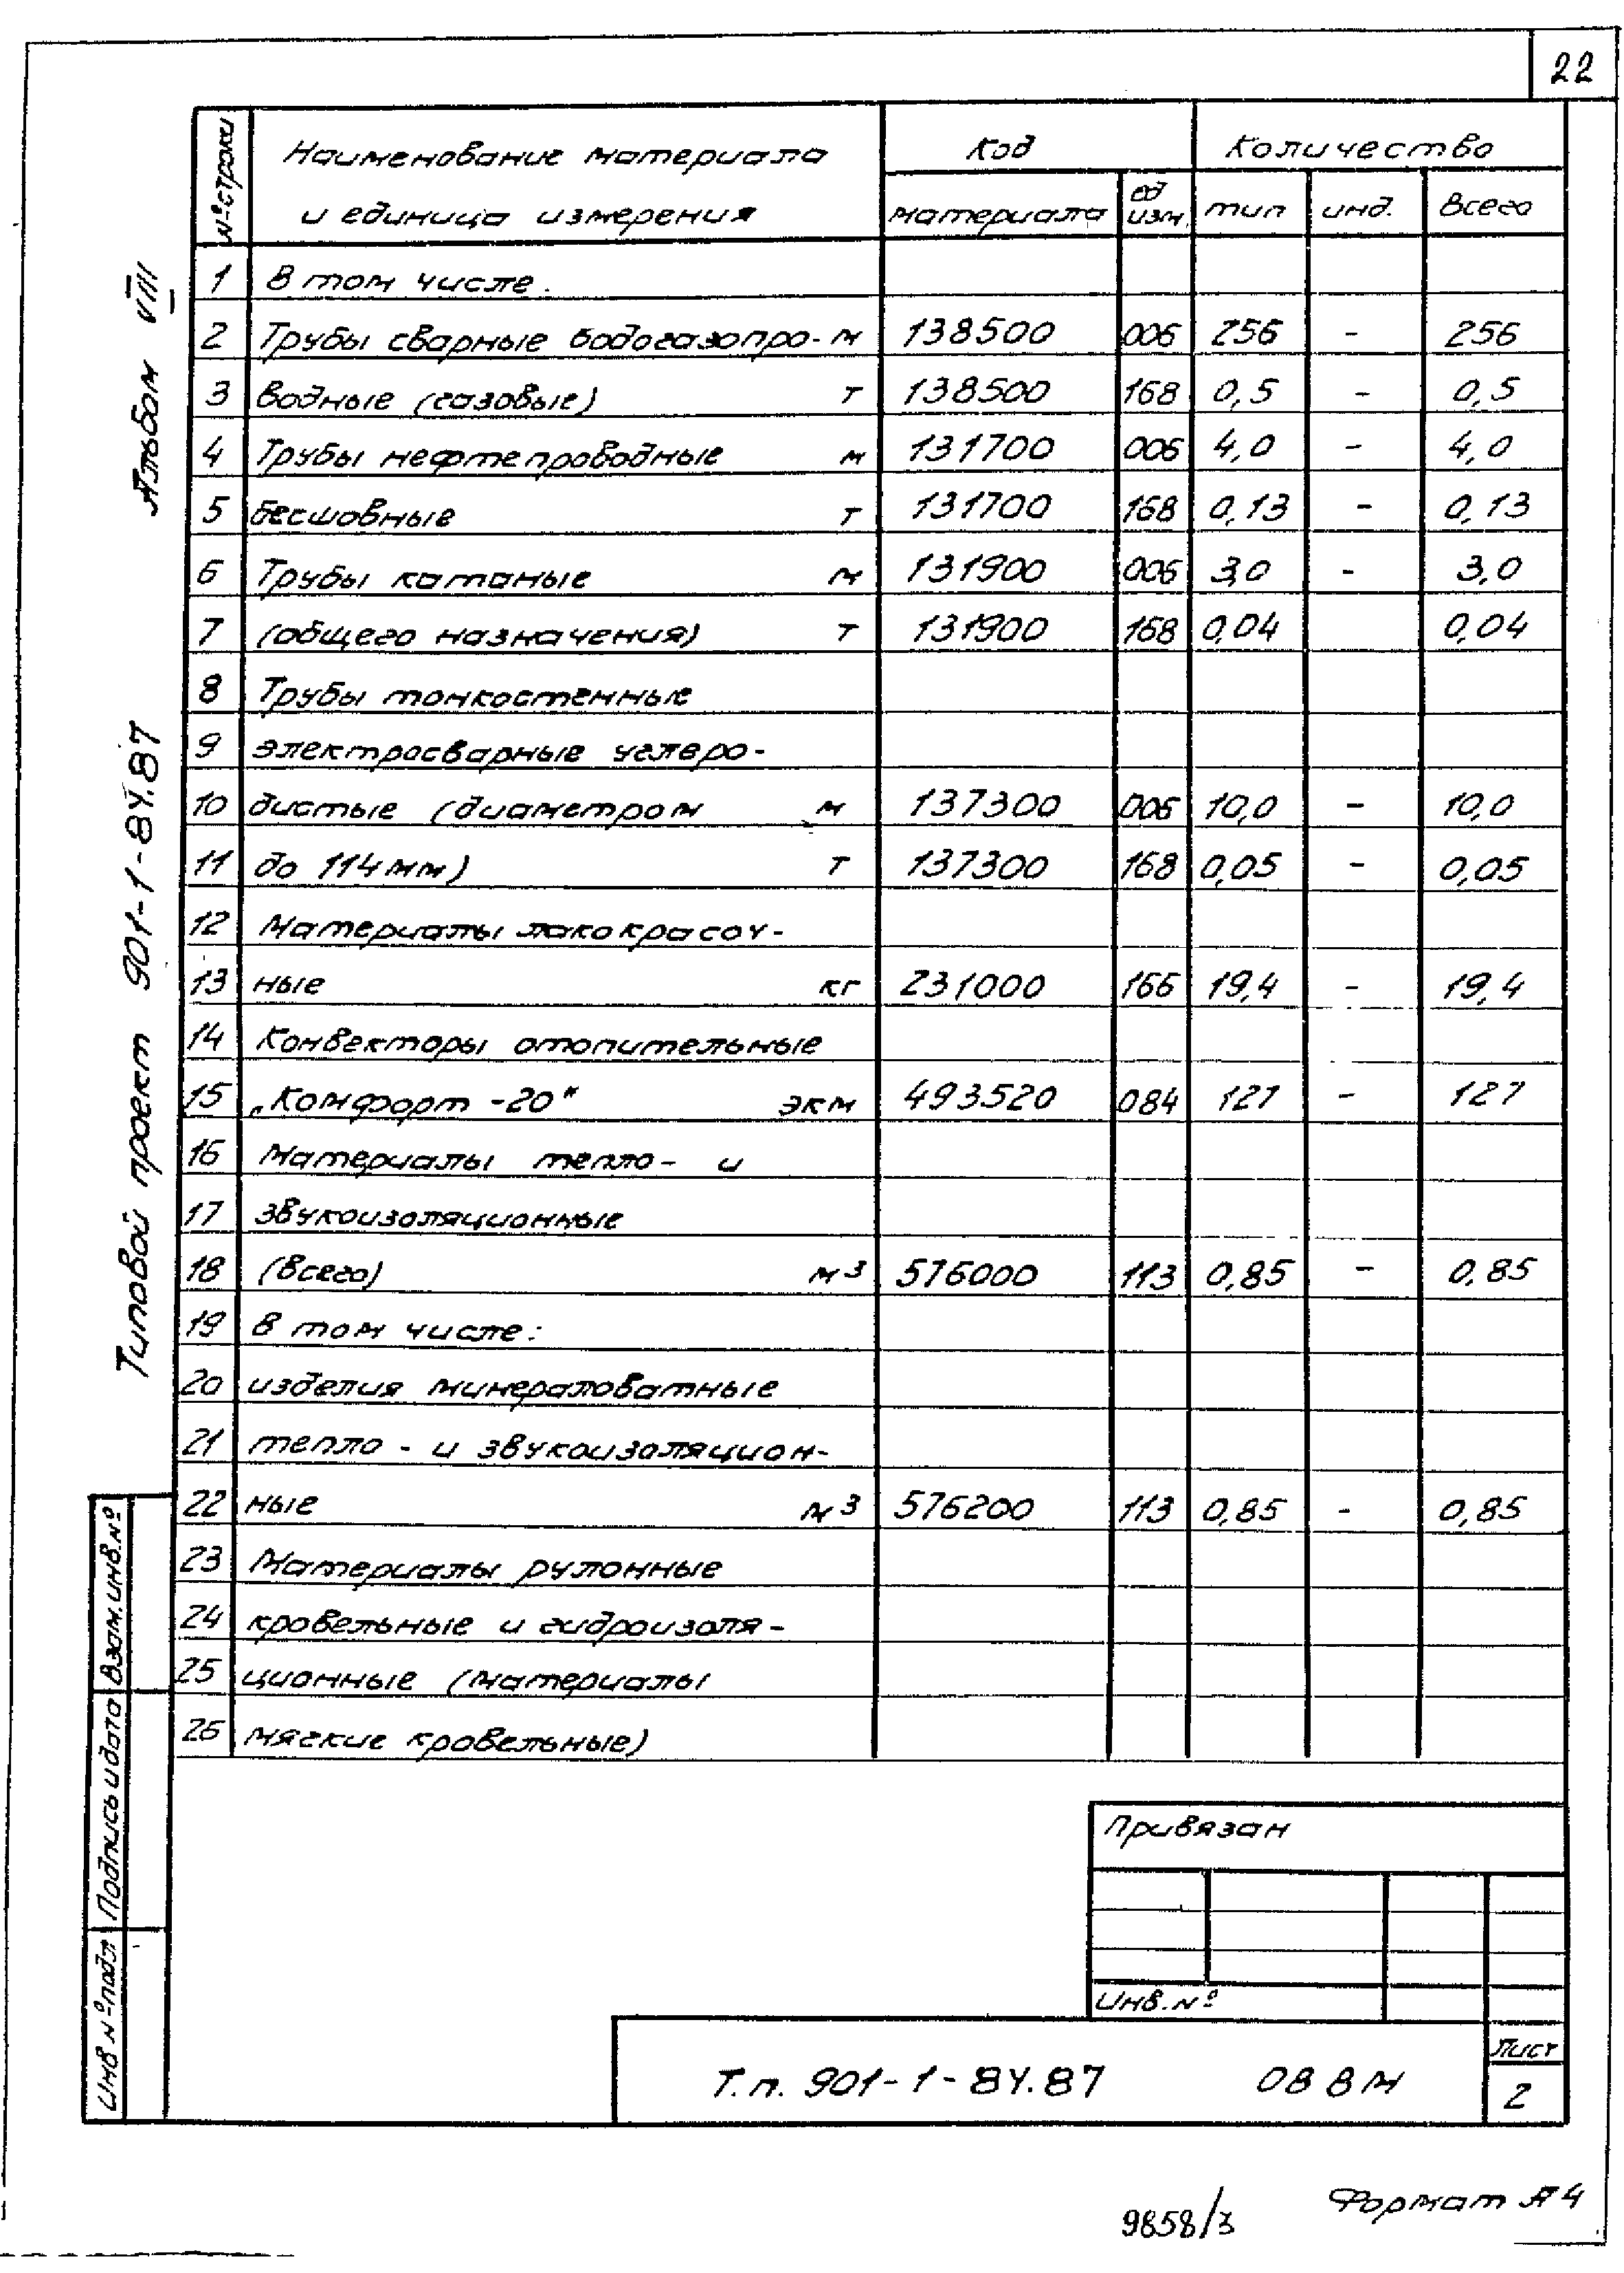 22
№ строки | Наименование материала и единица измерения | Код | Количество
материала | ед изм. | тип | инд. | Всего
1 | В том числе.
2 | Трубы сварные водогазопро- м | 138500 | 006 | 256 | - | 256
3 | водные (газовые) т | 138500 | 168 | 0,5 | - | 0,5
4 | Трубы нефтепроводные м | 131700 | 006 | 4,0 | - | 4,0
5 | бесшовные т | 131700 | 168 | 0,13 | - | 0,13
6 | Трубы катаные м | 131900 | 006 | 3,0 | - | 3,0
7 | (общего назначения) т | 131900 | 168 | 0,04 | | 0,04
8 | Трубы тонкостенные
9 | электросварные углеро-
10 | дистые (диаметром м | 137300 | 006 | 10,0 | - | 10,0
11 | до 114 мм) т | 137300 | 168 | 0,05 | - | 0,05
12 | Материалы лакокрасоч-
13 | ные кг | 231000 | 166 | 19,4 | - | 19,4
14 | Конвекторы отопительные
15 | „Комфорт -20" экм | 493520 | 084 | 127 | - | 127
16 | Материалы тепло- и
17 | звукоизоляционные
18 | (всего) м³ | 576000 | 113 | 0,85 | - | 0,85
19 | В том числе:
20 | изделия минераловатные
21 | тепло- и звукоизоляцион-
22 | ные м³ | 576200 | 113 | 0,85 | - | 0,85
23 | Материалы рулонные
24 | кровельные и гидроизоля-
25 | ционные (материалы
26 | мягкие кровельные)
Альбом VIII
Типовой проект 901-1-84.87
Взам.инв.№
Подпись и дата
Инв № подл
Привязан
Инв.№
Т.п. 901-1-84.87 ОВ ВМ
Лист
2
9858/3
Формат А4